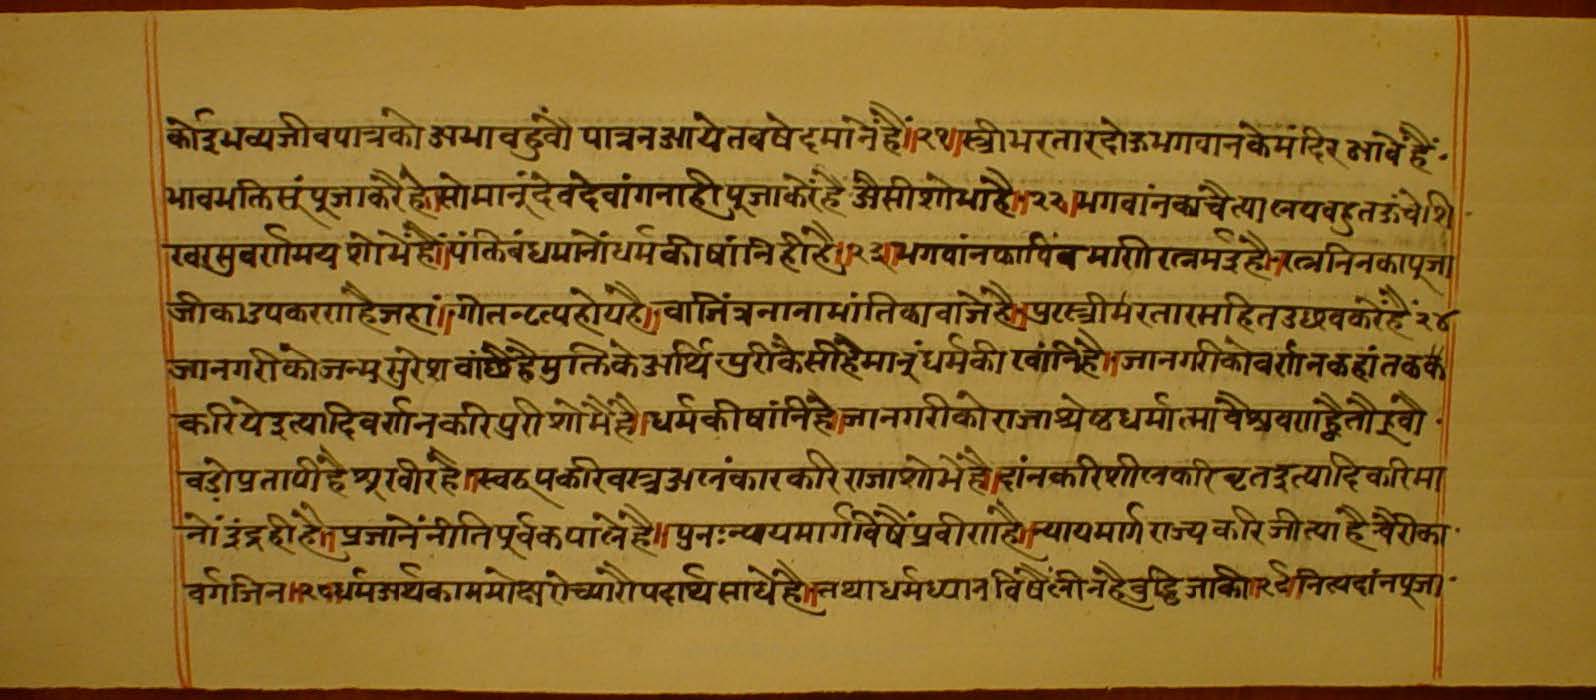 कोई भव्यजीव पात्रको अभाव हुवौ पात्र न आये तब षेद मानें हैं॥२१॥ स्त्री भरतार दोऊ भगवानके मंदिर आवें हैं
भावभक्ति सूं पूजा करै है॥सो मानूं देव देवांगना ही पूजा करें है अैसी शोभा है॥२२॥भगवांनका चैत्यालय बहुत ऊंचे शि
खर सुवर्णमय शोभें हैं॥पंक्तिबंध मानों धर्मकी षांनि ही है॥२३॥भगवांनका बिंब मणी रत्नमई है॥रत्ननिनका पूजा
जीका उपकरण है जहां॥गीत नृत्य होय है॥वाजिंत्र नाना भांतिका वाजे है॥पुरस्त्री भरतार सहित उछव करें हैं २४
जा नगरीको जन्म सुरेश वांछै है मुक्तिके अर्थि पुरी कैसी है मानूं धर्मकी खांनि है॥जा नगरीको वर्णन कहां तक क
करिये इत्यादि वर्णन करि पुरी शोभैं है॥धर्मकी षांनि है॥जा नगरीको राजा श्रेष्ठ धर्मात्मा वैश्रवण हूतौ हुवौ
बडो प्रतापी है शूरवीर है॥स्वरूप करि वस्त्र अलंकार करि राजा शोभें है॥दांन करि शील करि वृत इत्यादि करि मा
नों इंद्र ही है॥प्रजानें नीतिपूर्वक पाले है॥पुनः न्यायमार्ग विषैं प्रवीण है॥न्यायमार्ग राज्य करि जीत्या है वैरीका
वर्ग जिन॥२७॥धर्म अर्थ काम मोक्ष ऐ च्यारौ पदार्थ साधें है॥तथा धर्मध्यान विषैं लीन है वुद्धि जाकी॥२८॥नित्य दांन पूजा